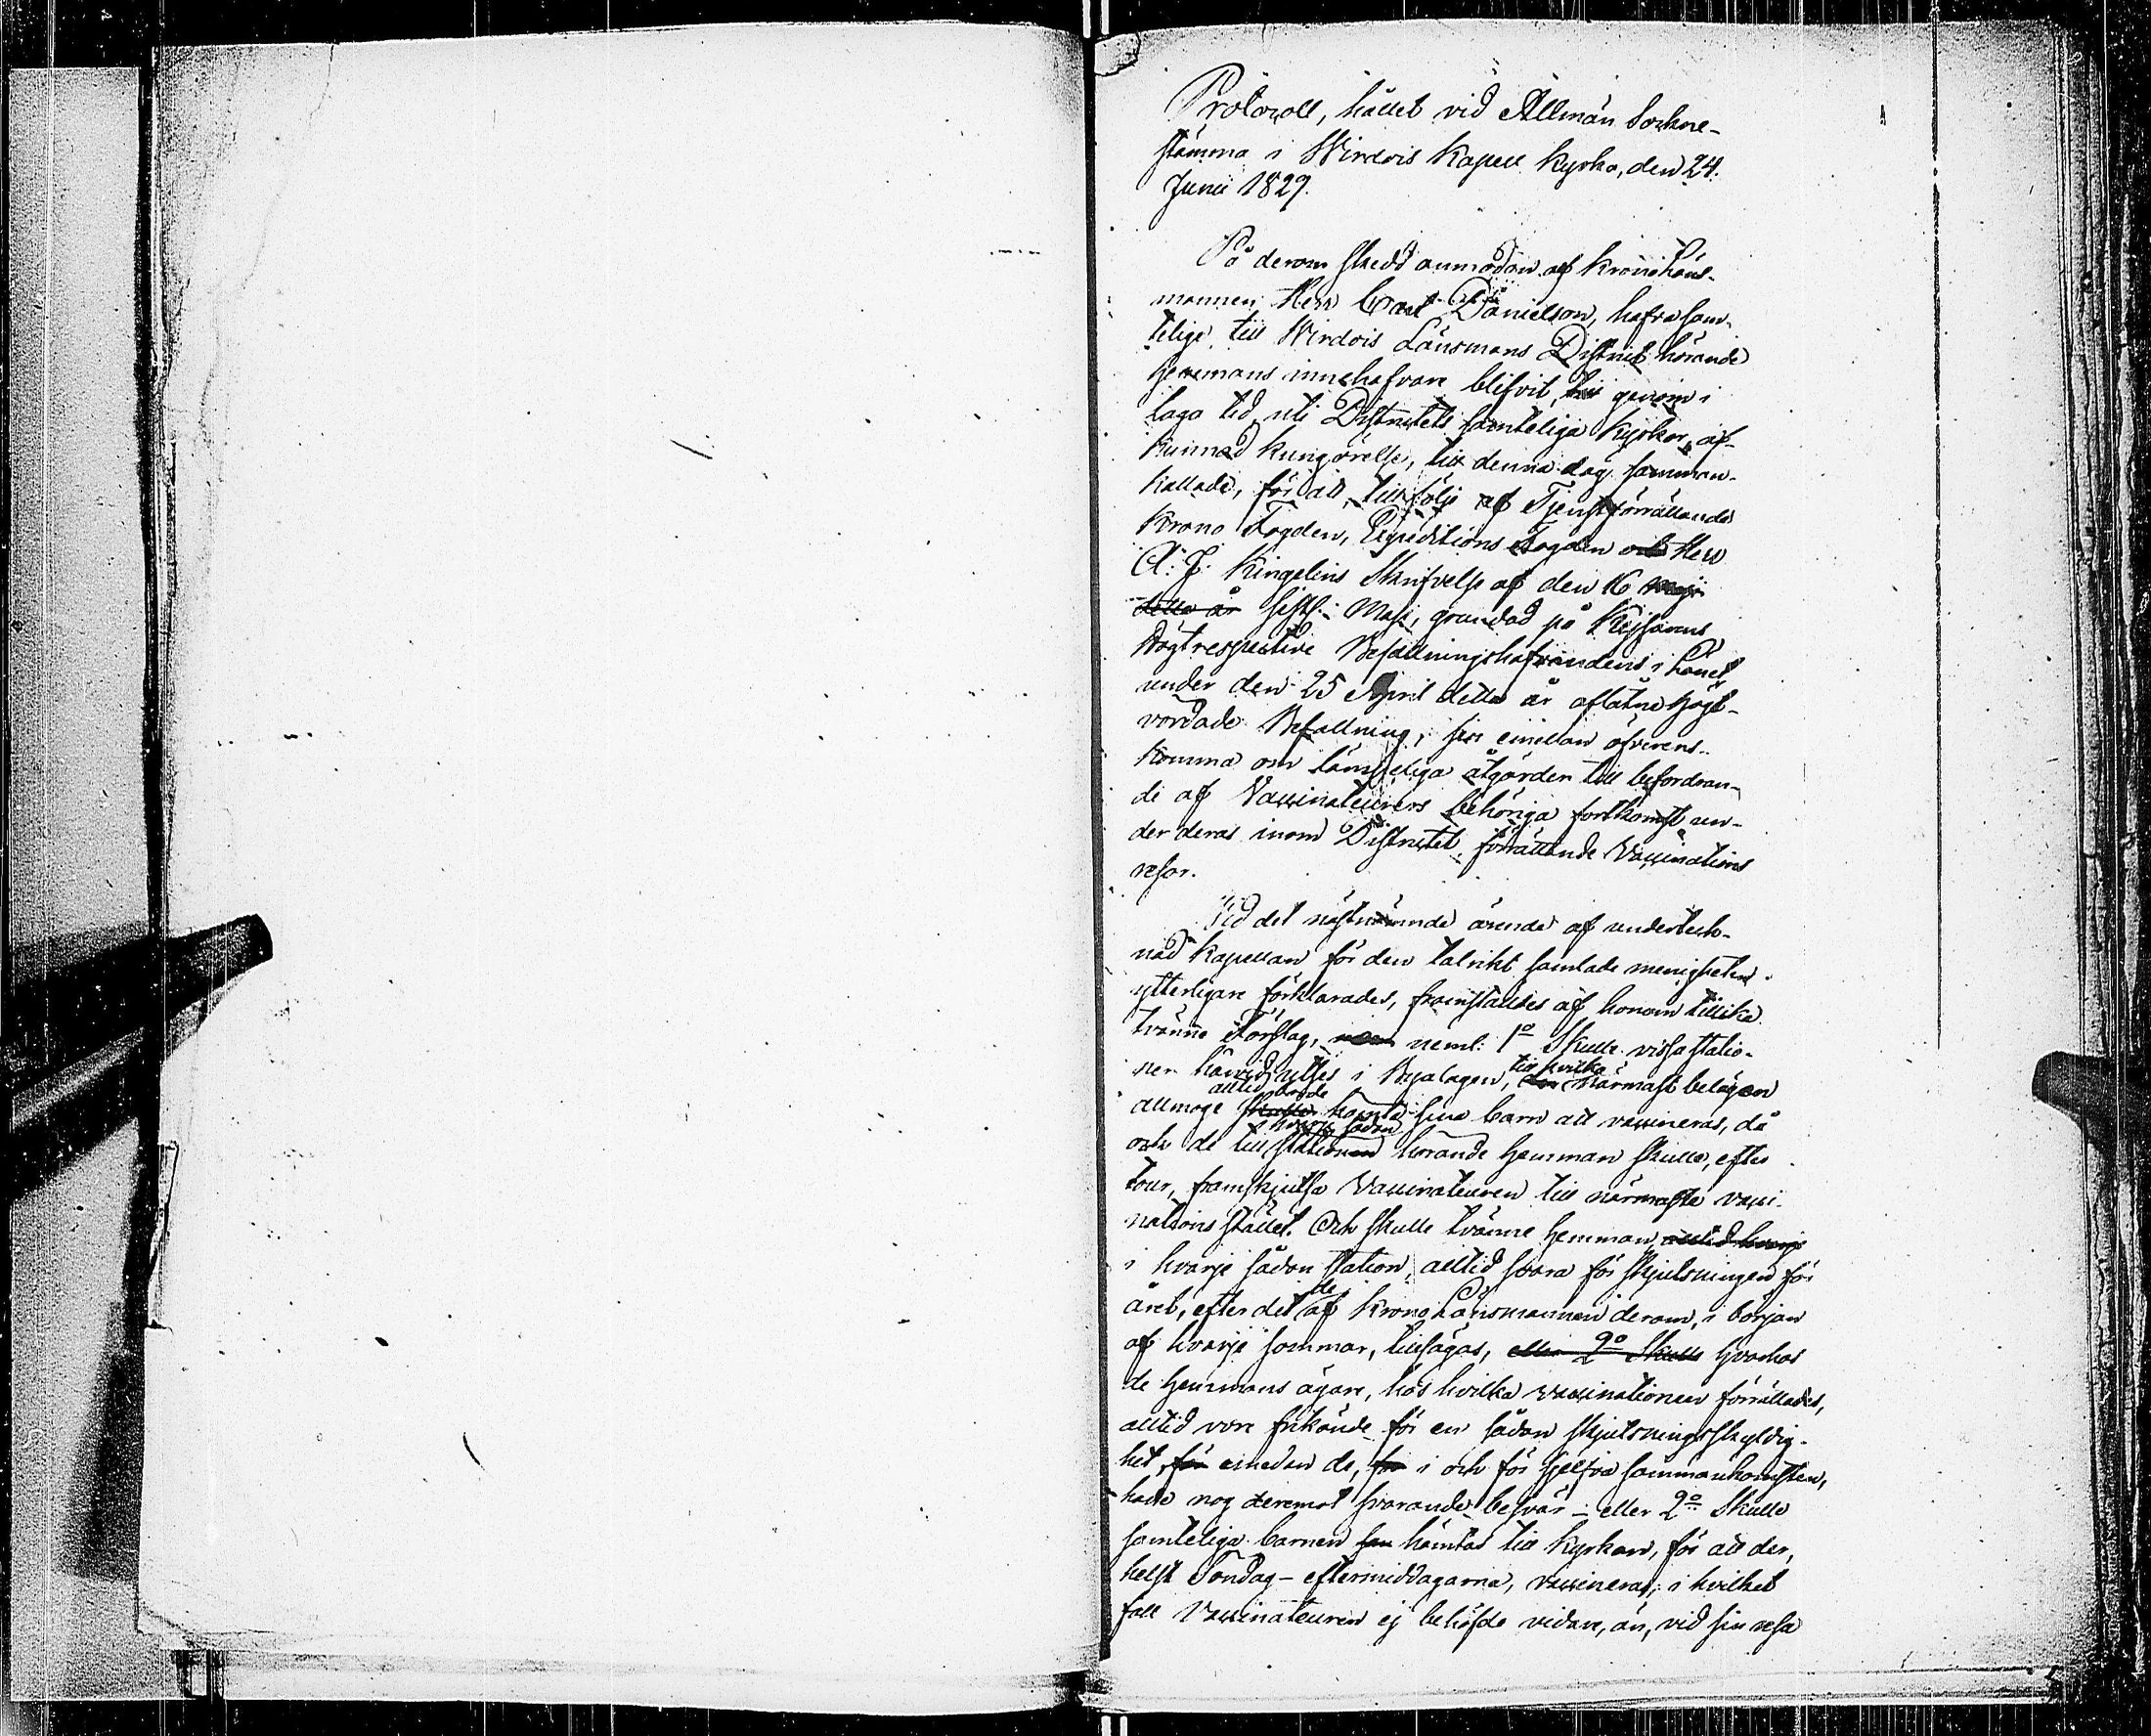 Protocoll, hållet vid Allmän Sockne-
stämma i Wirdois Kapell kyrka, den 24.
Junii 1829.
På derom skedd anmodan af Kronoläns-
mannen Herr Carl Danielson, hafva sam-
telige till Wirdois Länsmans District hörande
hemmans innehafvare blifvit, genom i
laga tid uti Districtets samteliga kyrkor, af-
kunnad kungörelse, till denna dag samman-
kallade, för att, till följe af Tjenstförrättande
Krono Fogden, Expeditions Fogden Herr
A: J: Kingelins Skrifvelse af den 16
sistl: Maji, grundad på Kejsarens
Högtrespective Befallningshafvandens i Länet
under den 25 April detta år aflåtne högt-
vördade Befallning, sins emellan öfverens-
komma om lämpeliga åtgärder till befordran-
de af Vaccinateurers behöriga fortkomst un-
der deras inom Districtet förrättande Vaccinations
resor.
Vid det nästnämnde ärende af underteck-
nad kapellan för den talrikt samlade menigheten
ytterligare förklarades, framställdes af honom tillika
tvänne Förslag, neml: 1o Skulle vissa statio-
ner härvid utses i Byalagen, till hvilka närmast belägen
allmoge alltid borde hämta sina barn att vaccineras, då
och de till hvarje sådan station hörande hemman skulle, efter
tour, framskjutsa Vaccinateuren till närmaste vacci-
nations stället. Och skulle tvänne hemman
i hvarje sådan station, alltid svara för skjutsningen för
året, efter det de af Krono Länsmannen derom, i början
af hvarje sommar, tillsägas, hvarhos
de hemmans ägare, hos hvilka vaccinationen förrättades,
alltid vore frikände för en sådan skjutsningsskyldig-
het, emedan de, i och för sjelfva sammankomsten,
hade nog deremot svarande besvär – eller 2o Skulle
samteliga barnen hämtas till kyrkan, för att der,
helst Söndag-eftermiddagarna, vaccineras; i hvilket
fall Vaccinateuren ej behöfde vidare, än, vid sin resa